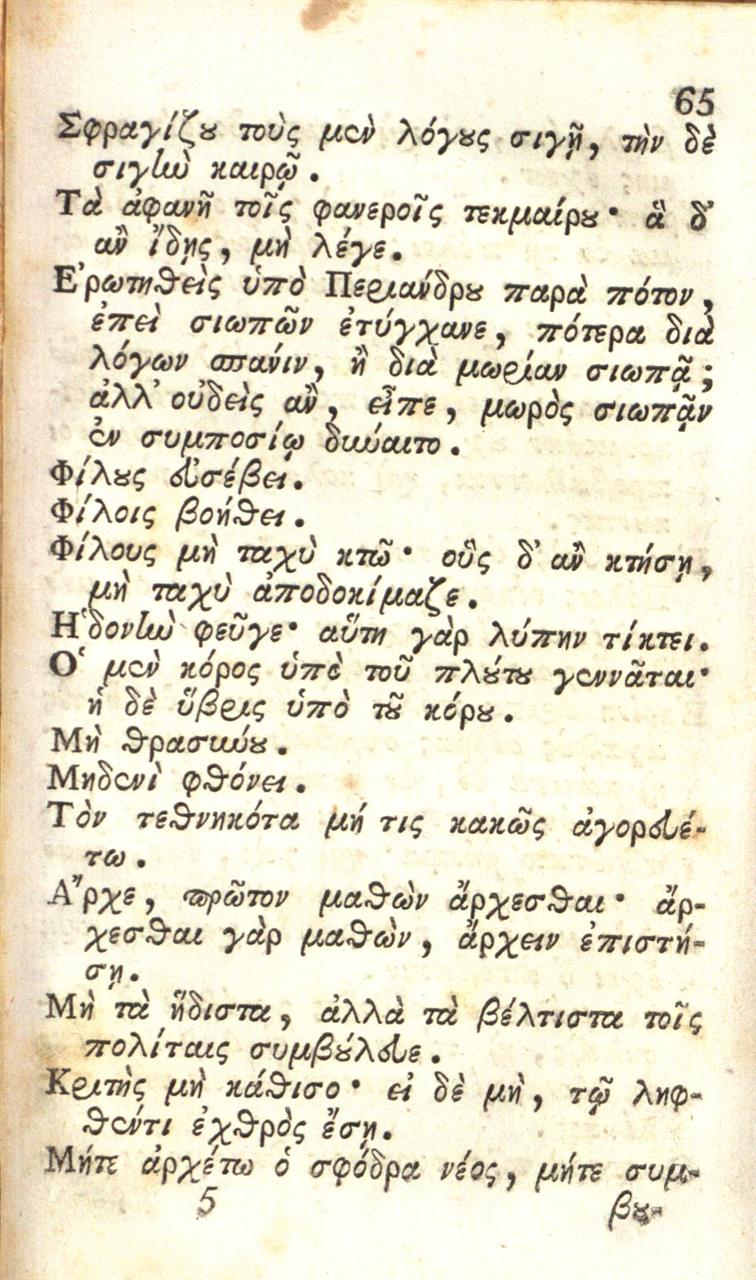 65
Σφραγίζου τοὺς μὲν λόγους σιγῇ, τὴν δὲ
σιγὴν καιρῷ.
Τὰ ἀφανῆ τοῖς φανεροῖς τεκμαίρου· ἃ δ'
ἂν ἴδῃς, μὴ λέγε.
Ἐρωτηθεὶς ὑπὸ Περιάνδρου παρὰ πότον,
ἐπεὶ σιωπῶν ἐτύγχανε, πότερα διὰ
λόγων σπάνιν, ἢ διὰ μωρίαν σιωπᾷ;
ἀλλ' οὐδεὶς ἂν, εἶπε, μωρὸς σιωπᾷν
ἐν συμποσίῳ δύναιτο.
Φίλους εὐσέβει.
Φίλοις βοήθει.
Φίλους μὴ ταχὺ κτῶ· οὓς δ' ἂν κτήσῃ,
μὴ ταχὺ ἀποδοκίμαζε.
Ἡδονὴν φεῦγε· αὕτη γὰρ λύπην τίκτει.
Ὁ μὲν κόρος ὑπὸ τοῦ πλούτου γεννᾶται·
ἡ δὲ ὕβρις ὑπὸ τοῦ κόρου.
Μὴ θρασύνου.
Μηδενὶ φθόνει.
Τὸν τεθνηκότα μή τις κακῶς ἀγορευέ-
τω.
Ἄρχε, πρῶτον μαθὼν ἄρχεσθαι· ἄρ-
χεσθαι γὰρ μαθὼν, ἄρχειν ἐπιστή-
σῃ.
Μὴ τὰ ἥδιστα, ἀλλὰ τὰ βέλτιστα τοῖς
πολίταις συμβούλευε.
Κριτὴς μὴ κάθισο· εἰ δὲ μὴ, τῷ ληφ-
θέντι ἐχθρὸς ἔσῃ.
Μήτε ἀρχέτω ὁ σφόδρα νέος, μήτε συμ-
5 βου-